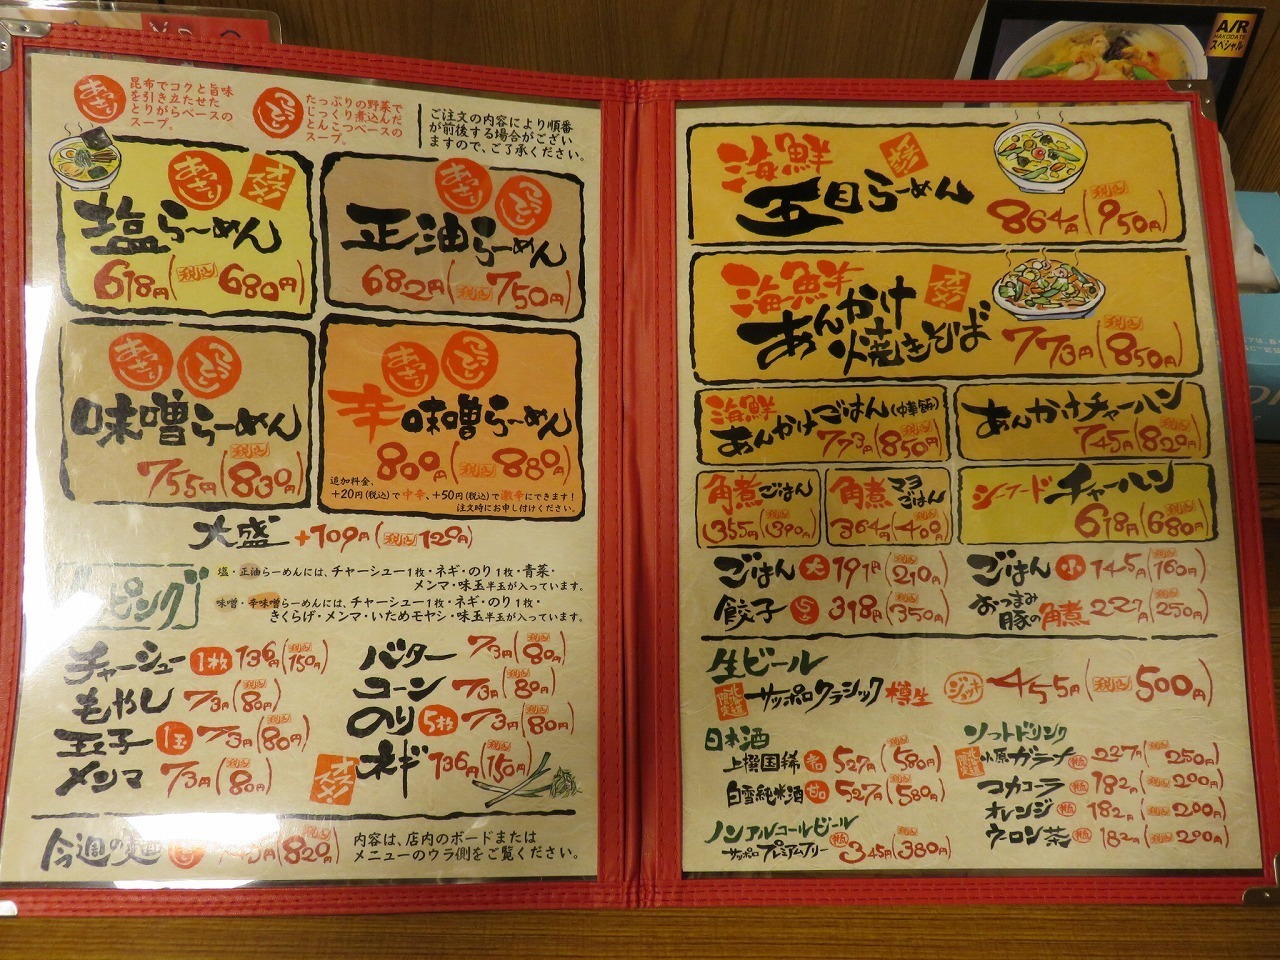 あっさり
昆布でコクと旨味
を引き立たせた
とりがらベースの
スープ。
こってり
たっぷりの野菜で
じっくり煮込んだ
とんこつベースの
スープ。
ご注文の内容により順番
が前後する場合がござい
ますので、ご了承ください。
あっさり
オススメ!
塩らーめん
618円(税込680円)
あっさり
こってり
正油らーめん
682円(税込750円)
あっさり
こってり
味噌らーめん
755円(税込830円)
あっさり
こってり
辛味噌らーめん
800円(税込880円)
追加料金、
+20円(税込)で中辛、+50円(税込)で激辛にできます!
注文時にお申し付けください。
大盛+109円(税込120円)
ピング
塩・正油らーめんには、チャーシュー1枚・ネギ・のり1枚・青菜・
メンマ・味玉半玉が入っています。
味噌・辛味噌らーめんには、チャーシュー1枚・ネギ・のり1枚・
きくらげ・メンマ・いためモヤシ・味玉半玉が入っています。
チャーシュー 1枚 136円(税込150円)
もやし 73円(税込80円)
玉子 1玉 73円(税込80円)
メンマ 73円(税込80円)
バター 73円(税込80円)
コーン 73円(税込80円)
のり 5枚 73円(税込80円)
オススメ!
ネギ 136円(税込150円)
今週の麺
税込820円)
内容は、店内のボードまたは
メニューのウラ側をご覧ください。
海鮮
五目らーめん
864円(税込950円)
海鮮
オススメ!
あんかけ
焼きそば
773円(税込850円)
海鮮
あんかけごはん(中華飯)
773円(税込850円)
あんかけチャーハン
745円(税込820円)
角煮ごはん
355円(税込390円)
角煮マヨごはん
364円(税込400円)
シーフードチャーハン
618円(税込680円)
ごはん 大 191円(税込210円)
ごはん 小 145円(税込160円)
餃子 5コ 318円(税込350円)
おつまみ
豚の角煮 227円(税込250円)
生ビール
北海道限定
サッポロクラシック樽生 ジョッキ 455円(税込500円)
日本酒
上撰国稀 527円(税込580円)
白雪純米酒 甘口 527円(税込580円)
ノンアルコールビール
サッポロプレミアムフリー 瓶 345円(税込380円)
ソフトドリンク
小原ガラナ 瓶 227円(税込250円)
コカコーラ 瓶 182円(税込200円)
オレンジ 瓶 182円(税込200円)
ウーロン茶 瓶 182円(税込200円)
A/R
HAKODATE
スペシャル